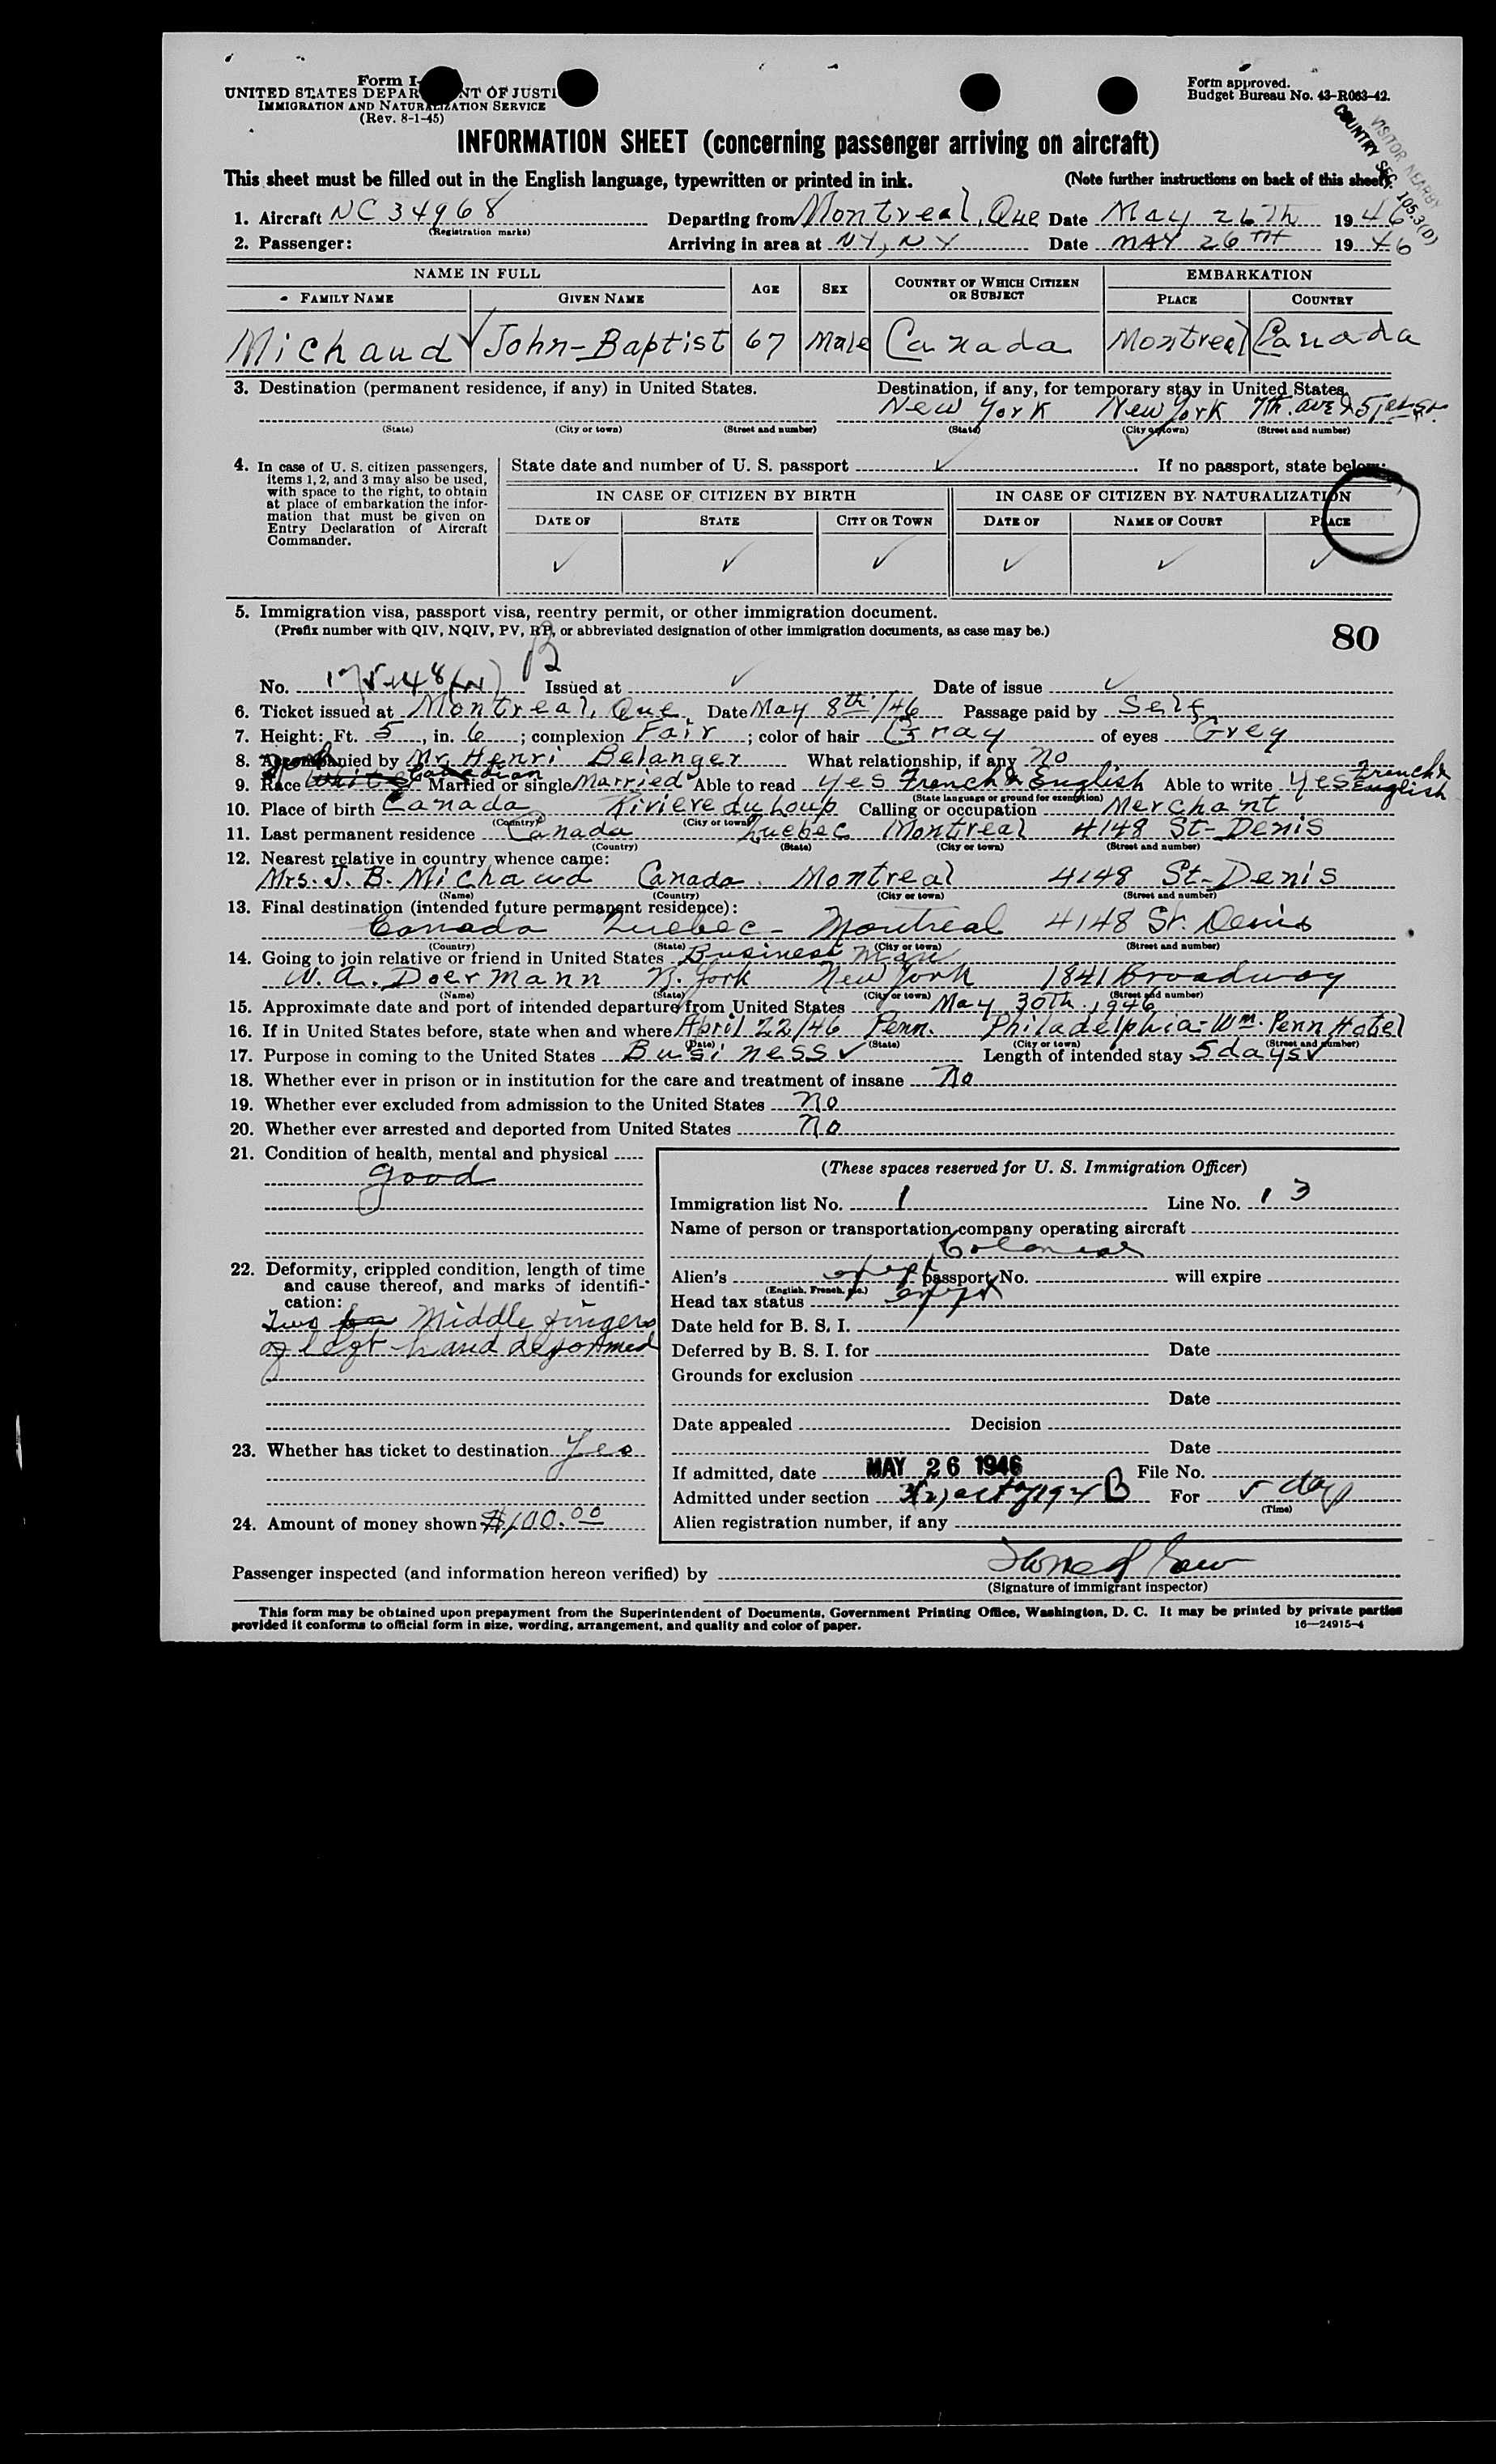 Form I-
UNITED STATES DEPAR NT OF JUSTI
IMMIGRATION AND NATURALIZATION SERVICE
(Rev. 8-1-45)
Form approved.
Budget Bureau No. 43-R063-42.
VISITOR NEARBY
COUNTRY SEC. 105.3(D)
INFORMATION SHEET (concerning passenger arriving on aircraft)
This sheet must be filled out in the English language, typewritten or printed in ink. (Note further instructions on back of this sheet).
1. Aircraft NC 34968 Departing from Montreal, Que Date May 26Th 1946
(Registration marks)
2. Passenger: Arriving in area at NY, NY Date MAY 26TH 1946
NAME IN FULL AGE SEX COUNTRY OF WHICH CITIZEN OR SUBJECT EMBARKATION
FAMILY NAME GIVEN NAME PLACE COUNTRY
Michaud John-Baptist 67 Male Canada Montreal Canada
3. Destination (permanent residence, if any) in United States. Destination, if any, for temporary stay in United States.
New York New York 7th. ave & 51st St.
(State) (City or town) (Street and number) (State) (City or town) (Street and number)
4. In case of U. S. citizen passengers, items 1, 2, and 3 may also be used, with space to the right, to obtain at place of embarkation the information that must be given on Entry Declaration of Aircraft Commander.
State date and number of U. S. passport If no passport, state below:
IN CASE OF CITIZEN BY BIRTH IN CASE OF CITIZEN BY NATURALIZATION
DATE OF STATE CITY OR TOWN DATE OF NAME OF COURT PLACE
5. Immigration visa, passport visa, reentry permit, or other immigration document.
(Prefix number with QIV, NQIV, PV, RP, or abbreviated designation of other immigration documents, as case may be.)
80
No. Issued at Date of issue
6. Ticket issued at Montreal, Que Date May 8th/46 Passage paid by Self
7. Height: Ft. 5, in. 6; complexion Fair; color of hair Gray of eyes Grey
8. Accompanied by Mr. Henri Belanger What relationship, if any No
9. Race White Canadian Married or single Married Able to read yes French & English Able to write yes French & English
(State language or ground for exemption)
10. Place of birth Canada Riviere du Loup Calling or occupation Merchant
(Country) (City or town)
11. Last permanent residence Canada Quebec Montreal 4148 St-Denis
(Country) (State) (City or town) (Street and number)
12. Nearest relative in country whence came:
Mrs. J. B. Michaud Canada. Montreal 4148 St-Denis
(Name) (Country) (City or town) (Street and number)
13. Final destination (intended future permanent residence):
Canada Quebec- Montreal 4148 St. Denis
(Country) (State) (City or town) (Street and number)
14. Going to join relative or friend in United States Business man
W. A. Doermann N. York New York 1841 Broadway
(Name) (State) (City or town) (Street and number)
15. Approximate date and port of intended departure from United States May 30th. 1946
16. If in United States before, state when and where April 22/46 Penn. Philadelphia- Wm. Penn Hotel
(Date) (State) (City or town) (Street and number)
17. Purpose in coming to the United States Business Length of intended stay 5 days
18. Whether ever in prison or in institution for the care and treatment of insane No
19. Whether ever excluded from admission to the United States No
20. Whether ever arrested and deported from United States No
21. Condition of health, mental and physical
good
22. Deformity, crippled condition, length of time and cause thereof, and marks of identification:
Two Middle fingers
of left hand deformed
23. Whether has ticket to destination Yes
24. Amount of money shown $100.00
(These spaces reserved for U. S. Immigration Officer)
Immigration list No. 1 Line No. 13
Name of person or transportation company operating aircraft
Colonial
Alien's passport No. will expire
(English, French, etc.)
Head tax status
Date held for B. S. I.
Deferred by B. S. I. for Date
Grounds for exclusion
Date
Date appealed Decision
Date
If admitted, date MAY 26 1946 File No.
Admitted under section 3(2) act of 1924 B For 5 day
(Time)
Alien registration number, if any
Passenger inspected (and information hereon verified) by
(Signature of immigrant inspector)
This form may be obtained upon prepayment from the Superintendent of Documents, Government Printing Office, Washington, D. C. It may be printed by private parties
provided it conforms to official form in size, wording, arrangement, and quality and color of paper. 16—24915-4